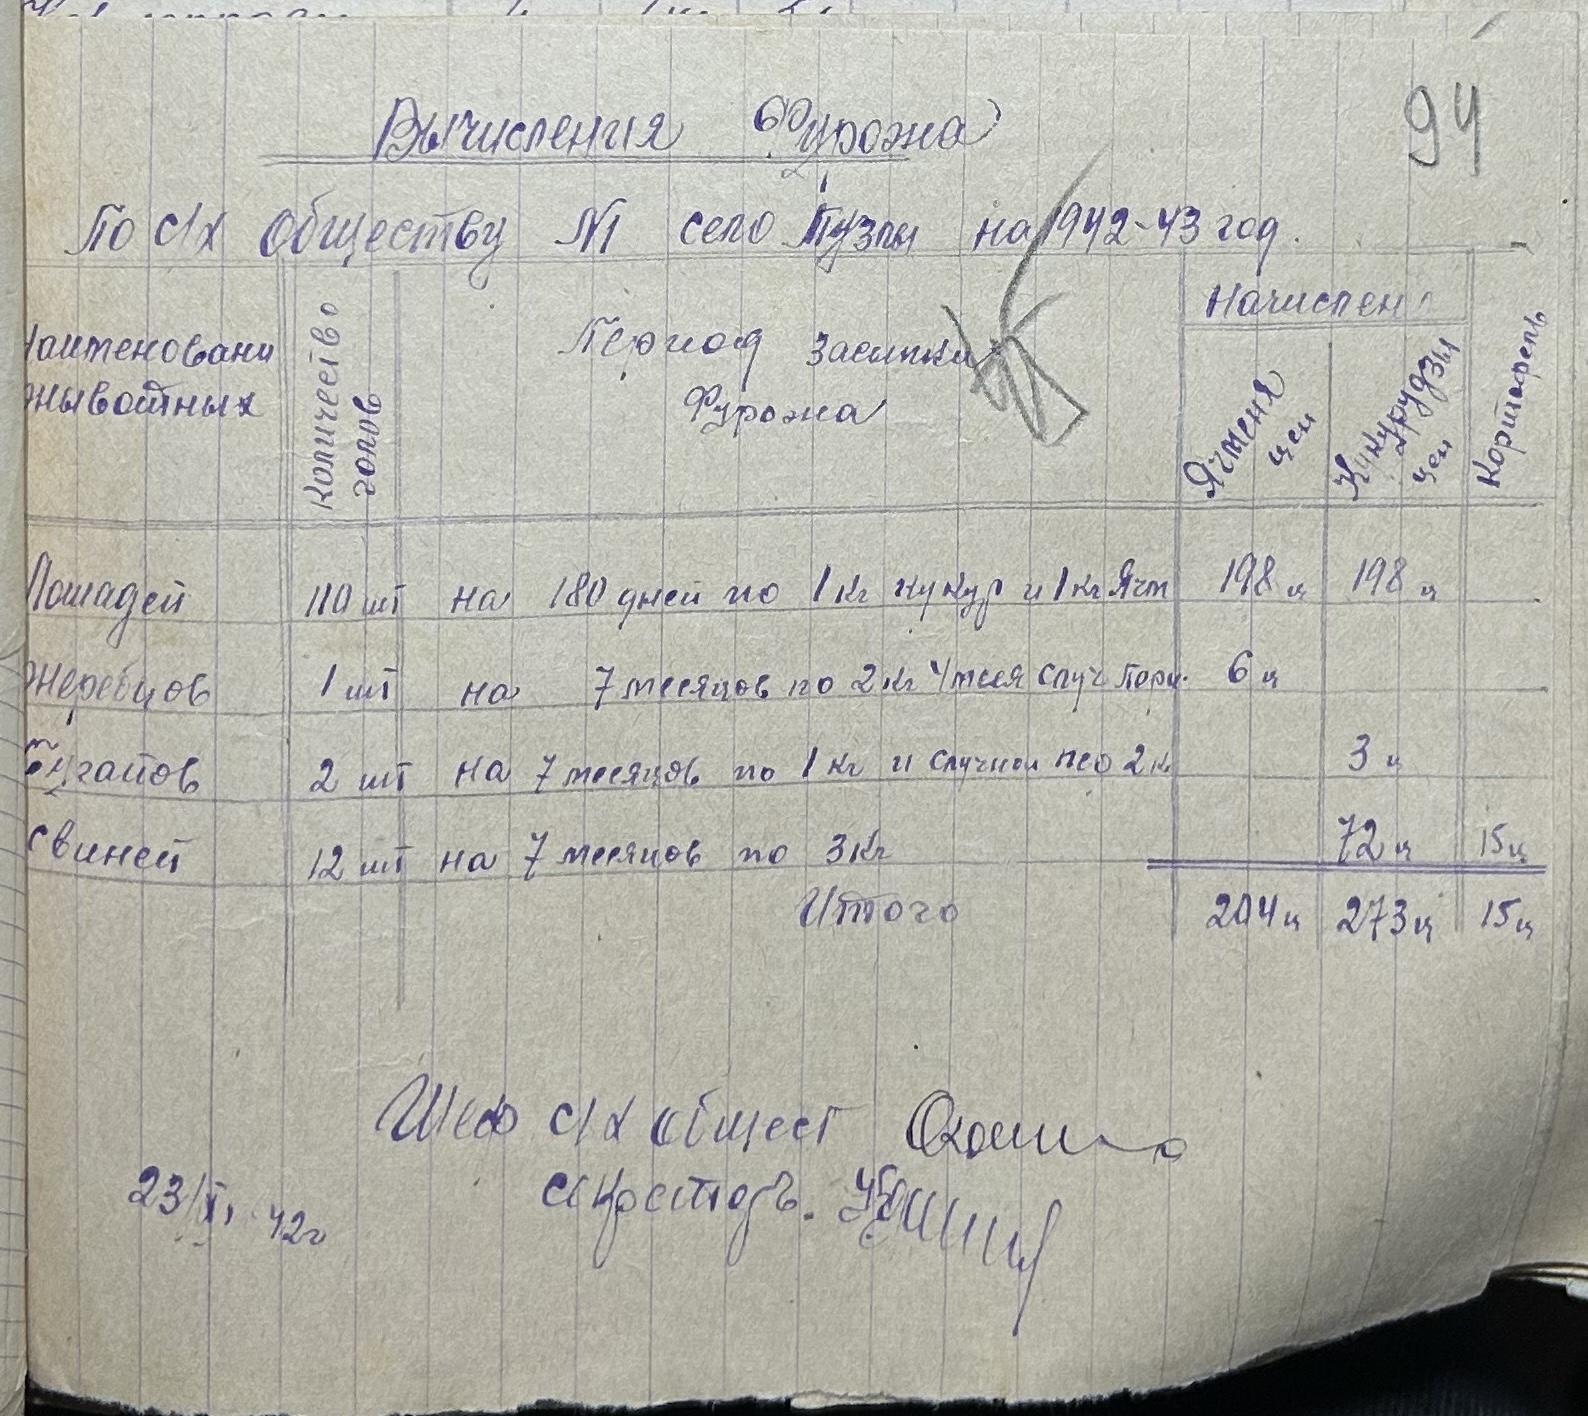 94
Вычисления Фуража
По с/х обществу №1 село Пузпы на 1942-43 год.
Наименовани живатных
Количество голов
Период засипки Фуража
Начислен
Ячменя цен
Кукурудзы цен
Картофель
Лошадей 110 шт на 180 дней по 1 кг кукур и 1 кг Ячм 198 ц 198 ц
жеребцов 1 шт на 7 месяцов по 2 кг 4 меся случ пори. 6 ц
Бугайов 2 шт на 7 месяцов по 1 кг и случной пео 2 кг 3 ц
Свиней 12 шт на 7 месяцов по 3 кг 72 ц 15 ц
Итого 204 ц 273 ц 15 ц
Шеф с/х общест
секростарь.
23/XI. 42 г